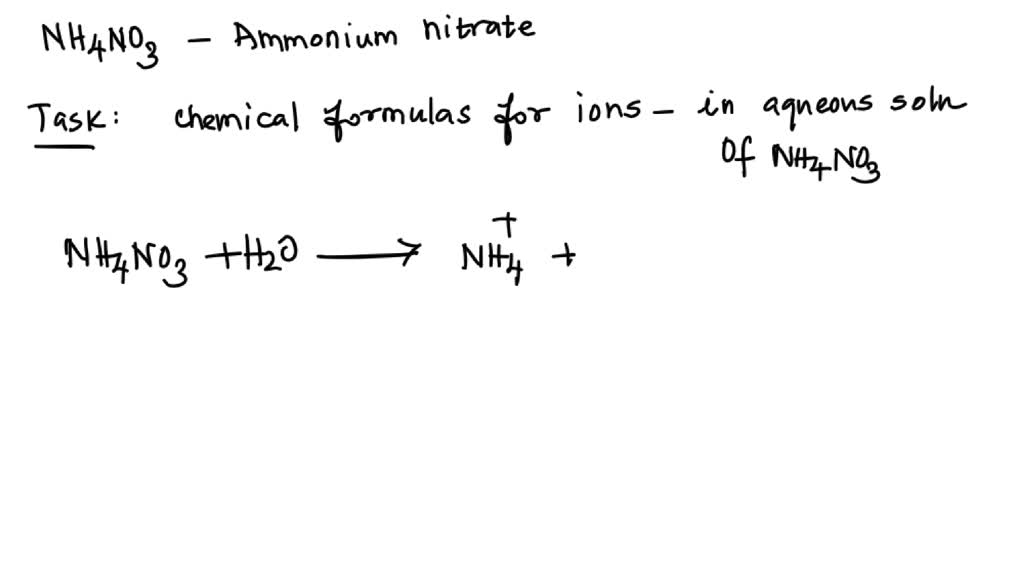 NH₄NO₃ – Ammonium nitrate
Task: chemical formulas for ions – in aqneous soln
Of NH₄NO₃
NH₄NO₃ + H₂O ⟶ NH₄⁺ +